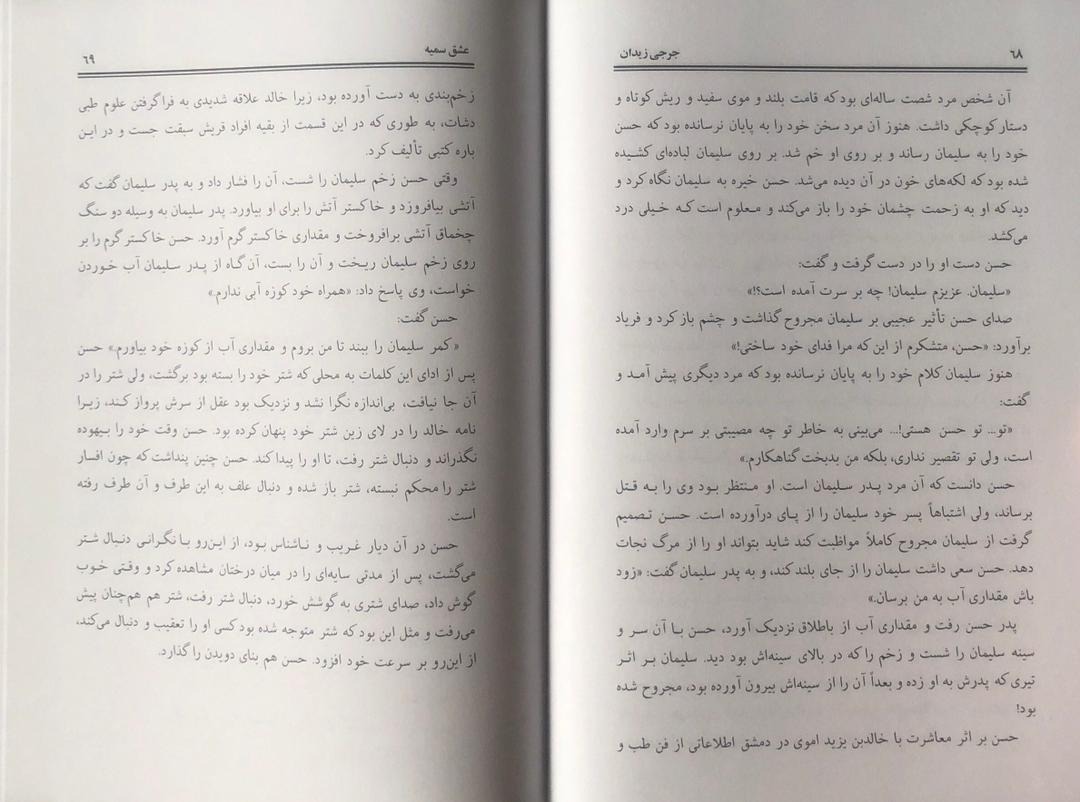 ۶۸ جرجی زیدان
آن شخص مرد شصت ساله‌ای بود که قامت بلند و موی سفید و ریش کوتاه و
دستار کوچکی داشت. هنوز آن مرد سخن خود را به پایان نرسانده بود که حسن
خود را به سلیمان رساند و بر روی او خم شد. بر روی سلیمان لباده‌ای کشیده
شده بود که لکه‌های خون در آن دیده می‌شد. حسن خیره به سلیمان نگاه کرد و
دید که او به زحمت چشمان خود را باز می‌کند و معلوم است که خیلی درد
می‌کشد.
حسن دست او را در دست گرفت و گفت:
«سلیمان. عزیزم سلیمان! چه بر سرت آمده است؟!»
صدای حسن تأثیر عجیبی بر سلیمان مجروح گذاشت و چشم باز کرد و فریاد
برآورد: «حسن، متشکرم از این که مرا فدای خود ساختی!»
هنوز سلیمان کلام خود را به پایان نرسانده بود که مرد دیگری پیش آمد و
گفت:
«تو... تو حسن هستی!... می‌بینی به خاطر تو چه مصیبتی بر سرم وارد آمده
است، ولی تو تقصیر نداری، بلکه من بدبخت گناهکارم.»
حسن دانست که آن مرد پدر سلیمان است. او منتظر بود وی را به قتل
برساند، ولی اشتباهاً پسر خود سلیمان را از پای درآورده است. حسن تصمیم
گرفت از سلیمان مجروح کاملاً مواظبت کند شاید بتواند او را از مرگ نجات
دهد. حسن سعی داشت سلیمان را از جای بلند کند، و به پدر سلیمان گفت: «زود
باش مقداری آب به من برسان.»
پدر حسن رفت و مقداری آب از باطلاق نزدیک آورد، حسن با آن سر و
سینه سلیمان را شست و زخم را که در بالای سینه‌اش بود دید. سلیمان بر اثر
تیری که پدرش به او زده و بعداً آن را از سینه‌اش بیرون آورده بود، مجروح شده
بود!
حسن بر اثر معاشرت با خالدبن یزید اموی در دمشق اطلاعاتی از فن طب و
عشق سمیه ۶۹
زخم‌بندی به دست آورده بود، زیرا خالد علاقه شدیدی به فرا گرفتن علوم طبی
دشات، به طوری که در این قسمت از بقیه افراد قریش سبقت جست و در این
باره کتبی تألیف کرد.
وقتی حسن زخم سلیمان را شست، آن را فشار داد و به پدر سلیمان گفت که
آتشی بیافروزد و خاکستر آتش را برای او بیاورد. پدر سلیمان به وسیله دو سنگ
چخماق آتشی برافروخت و مقداری خاکستر گرم آورد. حسن خاکستر گرم را بر
روی زخم سلیمان ریخت و آن را بست، آن گاه از پدر سلیمان آب خوردن
خواست، وی پاسخ داد: «همراه خود کوزه آبی ندارم.»
حسن گفت:
«کمر سلیمان را ببند تا من بروم و مقداری آب از کوزه خود بیاورم.» حسن
پس از ادای این کلمات به محلی که شتر خود را بسته بود برگشت، ولی شتر را در
آن جا نیافت، بی‌اندازه نگرا نشد و نزدیک بود عقل از سرش پرواز کند، زیرا
نامه خالد را در لای زین شتر خود پنهان کرده بود. حسن وقت خود را بیهوده
نگذراند و دنبال شتر رفت، تا او را پیدا کند. حسن چنین پنداشت که چون افسار
شتر را محکم نبسته، شتر باز شده و دنبال علف به این طرف و آن طرف رفته
است.
حسن در آن دیار غریب و ناشناس بود، از این‌رو با نگرانی دنبال شتر
می‌گشت، پس از مدتی سایه‌ای را در میان درختان مشاهده کرد و وقتی خوب
گوش داد، صدای شتری به گوشش خورد، دنبال شتر رفت، شتر هم هم‌چنان پیش
می‌رفت و مثل این بود که شتر متوجه شده بود کسی او را تعقیب و دنبال می‌کند،
از این‌رو بر سرعت خود افزود. حسن هم بنای دویدن را گذارد.